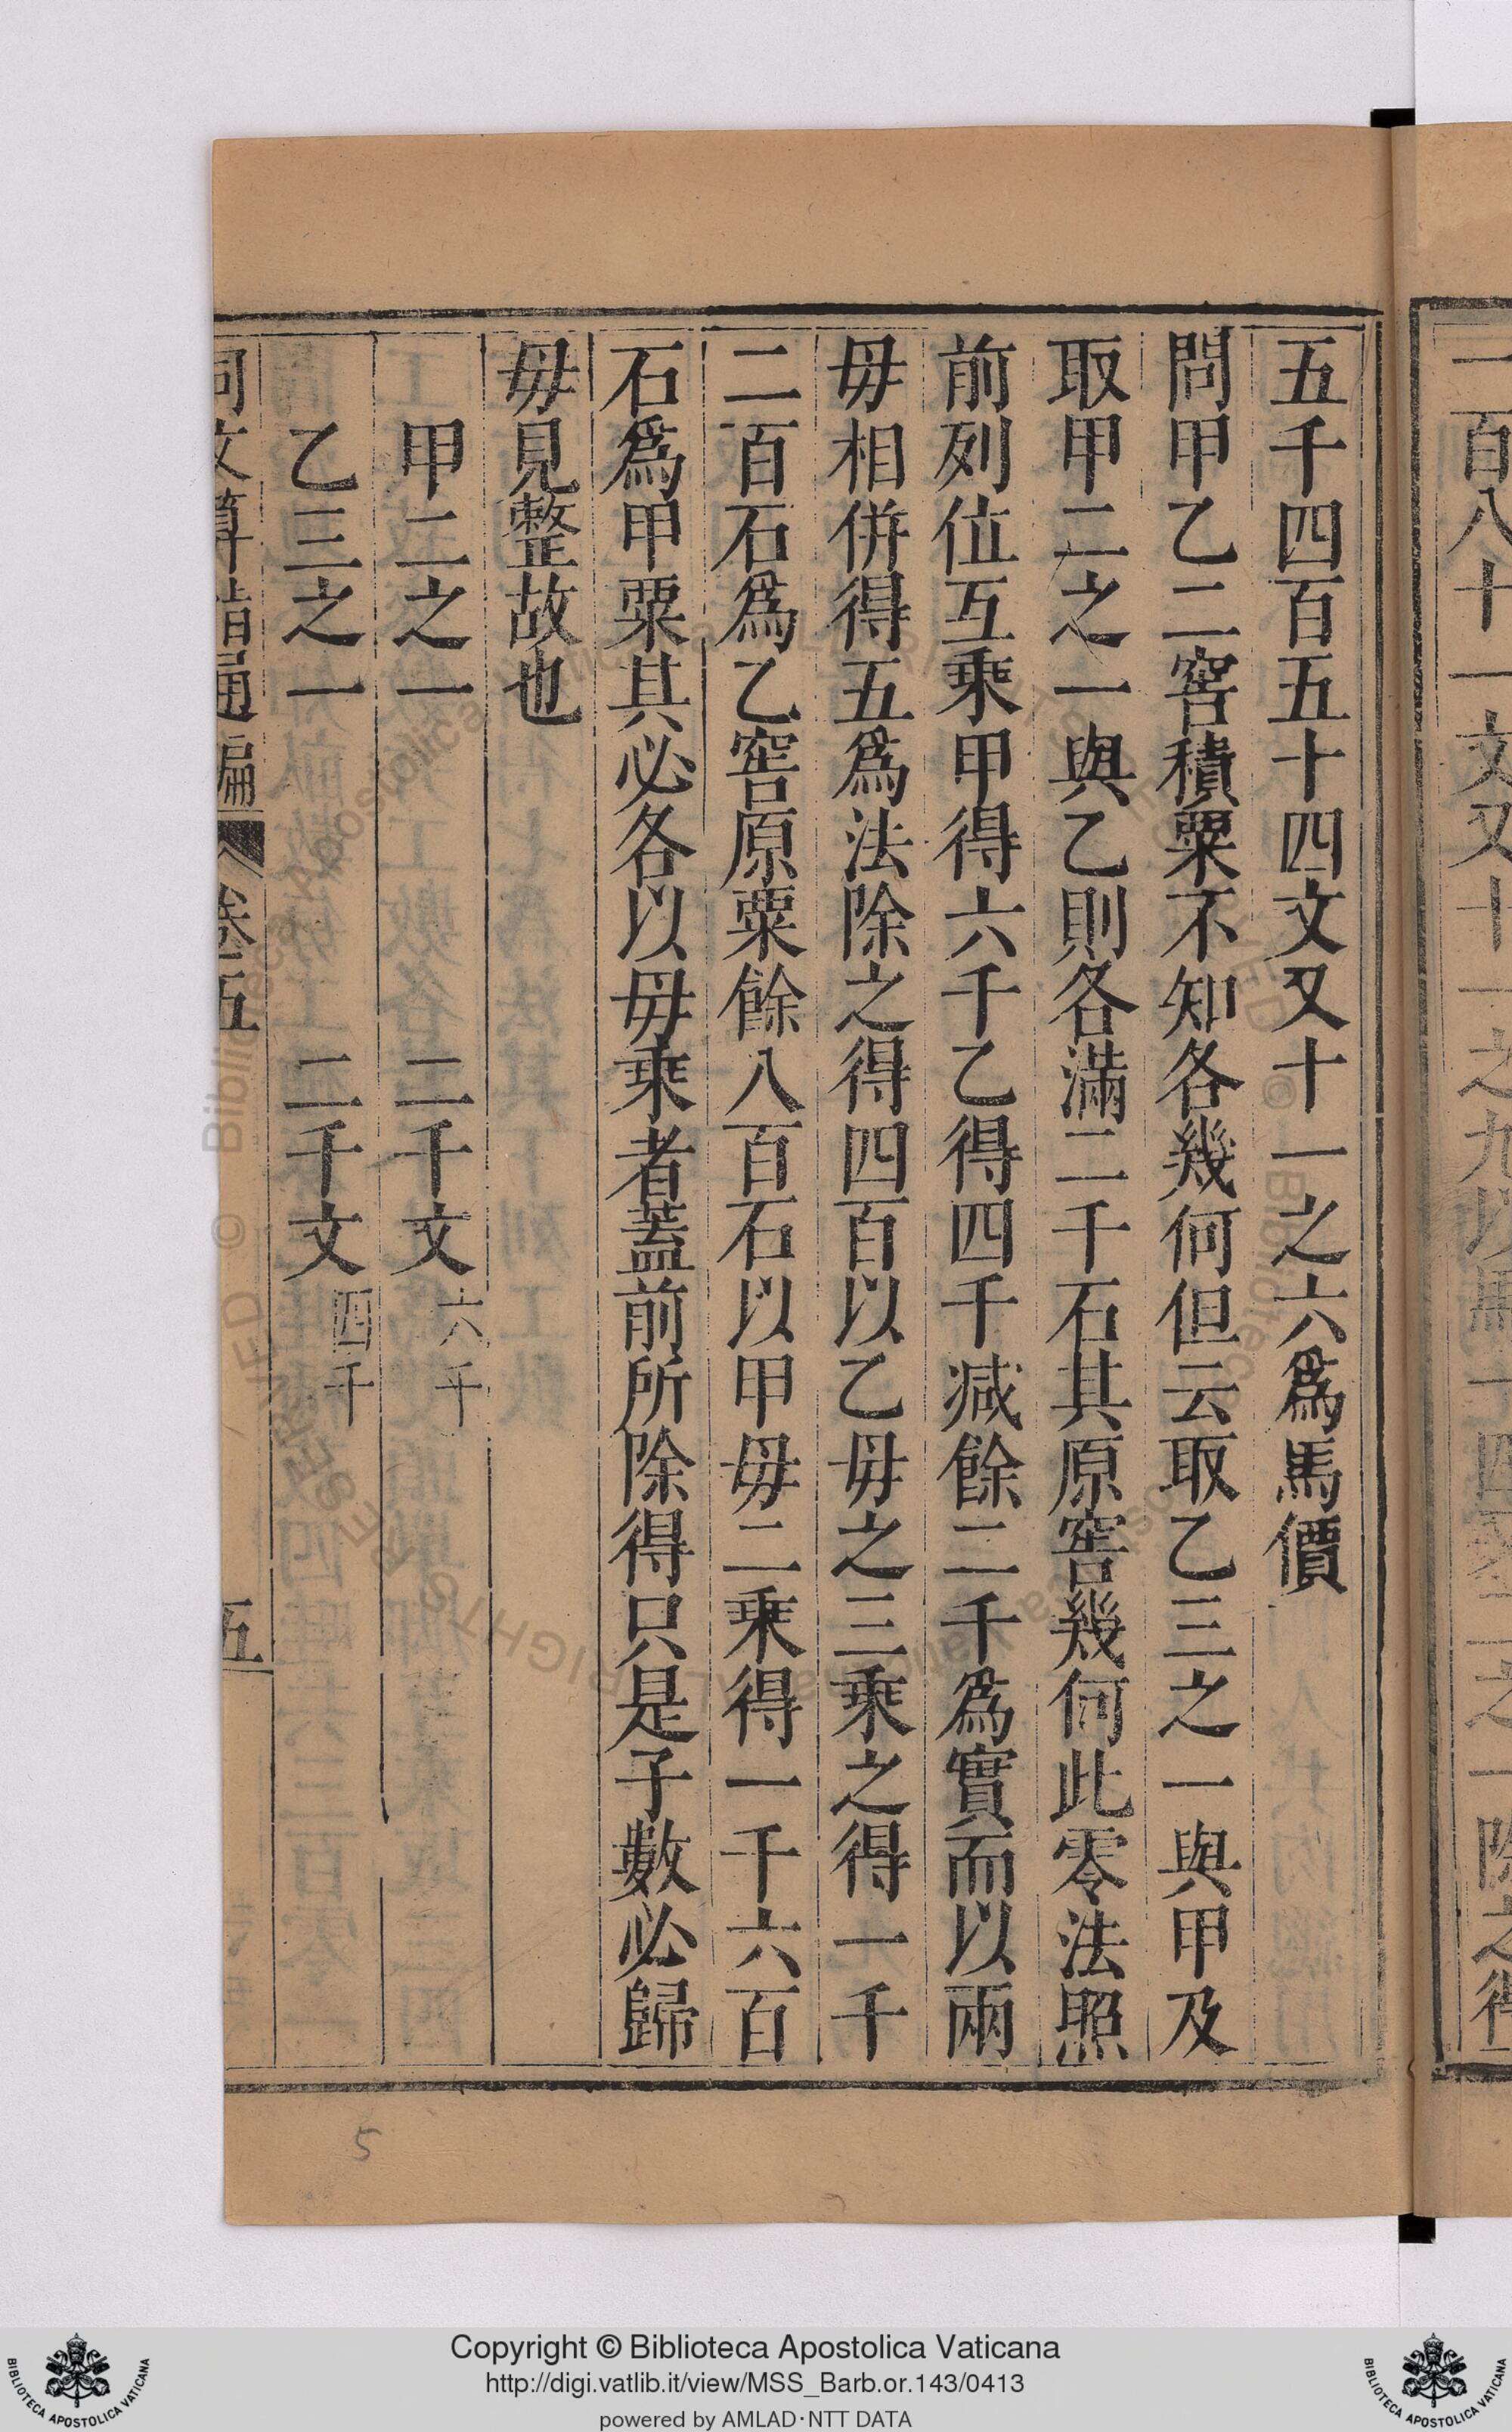 一百八十一文又十一之九以馬十四
之一除之得
五千四百五十四文又十一之六爲馬價
問甲乙二窖積粟不知各幾何但云取乙三之一與甲及
取甲二之一與乙則各滿二千石其原窖幾何此零法照
前列位互乘甲得六千乙得四千減餘二千爲實而以兩
毋相併得五爲法除之得四百以乙毋之三乘之得一千
二百石爲乙窖原粟餘八百石以甲毋二乘得一千六百
石爲甲粟其必各以毋乘者蓋前所除得只是子數必歸
毋見整故也
甲二之一 二千文 六千
乙三之一 二千文 四千
同文算指通編 卷五 五
5
Copyright © Biblioteca Apostolica Vaticana
http://digi.vatlib.it/view/MSS_Barb.or.143/0413
powered by AMLAD·NTT DATA
BIBLIOTECA APOSTOLICA VATICANA
BIBLIOTECA APOSTOLICA VATICANA